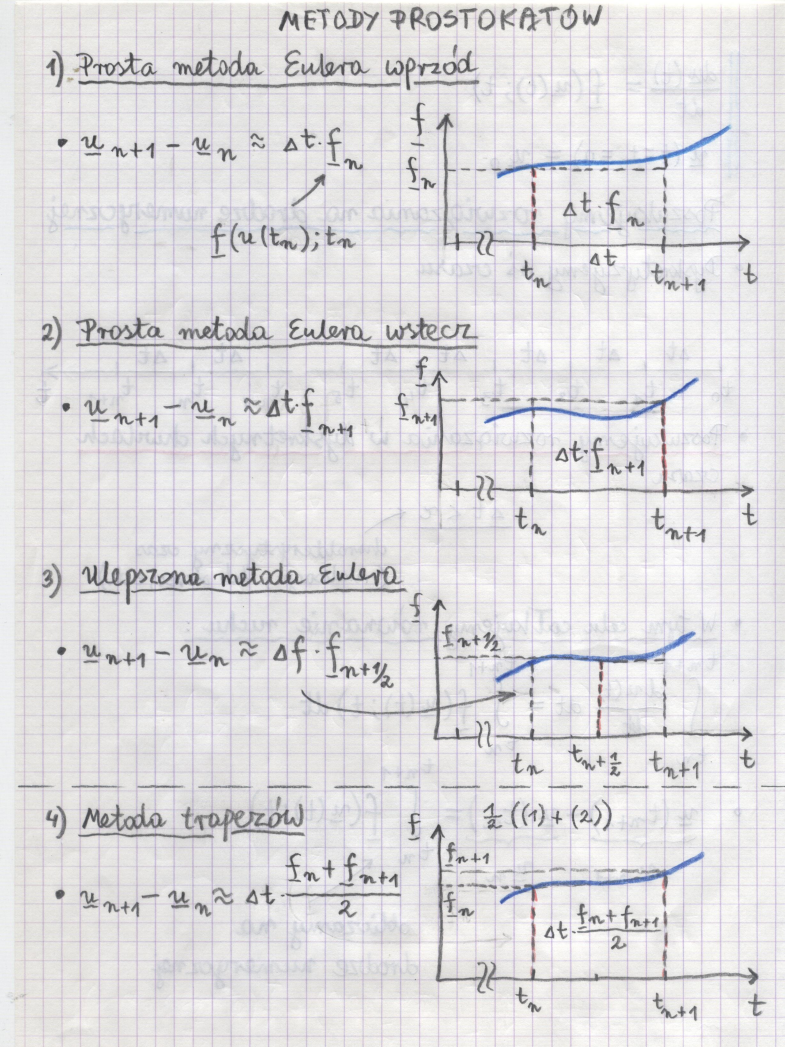 METODY PROSTOKĄTÓW
1) Prosta metoda Eulera wprzód
• u n+1 − u n ≈ Δt·f n
f(u(tn); tn
f
fn
Δt·fn
Δt
tn
tn+1
t
2) Prosta metoda Eulera wstecz
• u n+1 − u n ≈ Δt·f n+1
f
fn+1
Δt·fn+1
tn
tn+1
t
3) Ulepszona metoda Eulera
• u n+1 − u n ≈ Δf·f n+1/2
f
fn+1/2
tn
tn+1/2
tn+1
t
4) Metoda trapezów
• u n+1 − u n ≈ Δt·(fn + fn+1)/2
f
1/2 ((1) + (2))
fn+1
fn
Δt·(fn + fn+1)/2
tn
tn+1
t